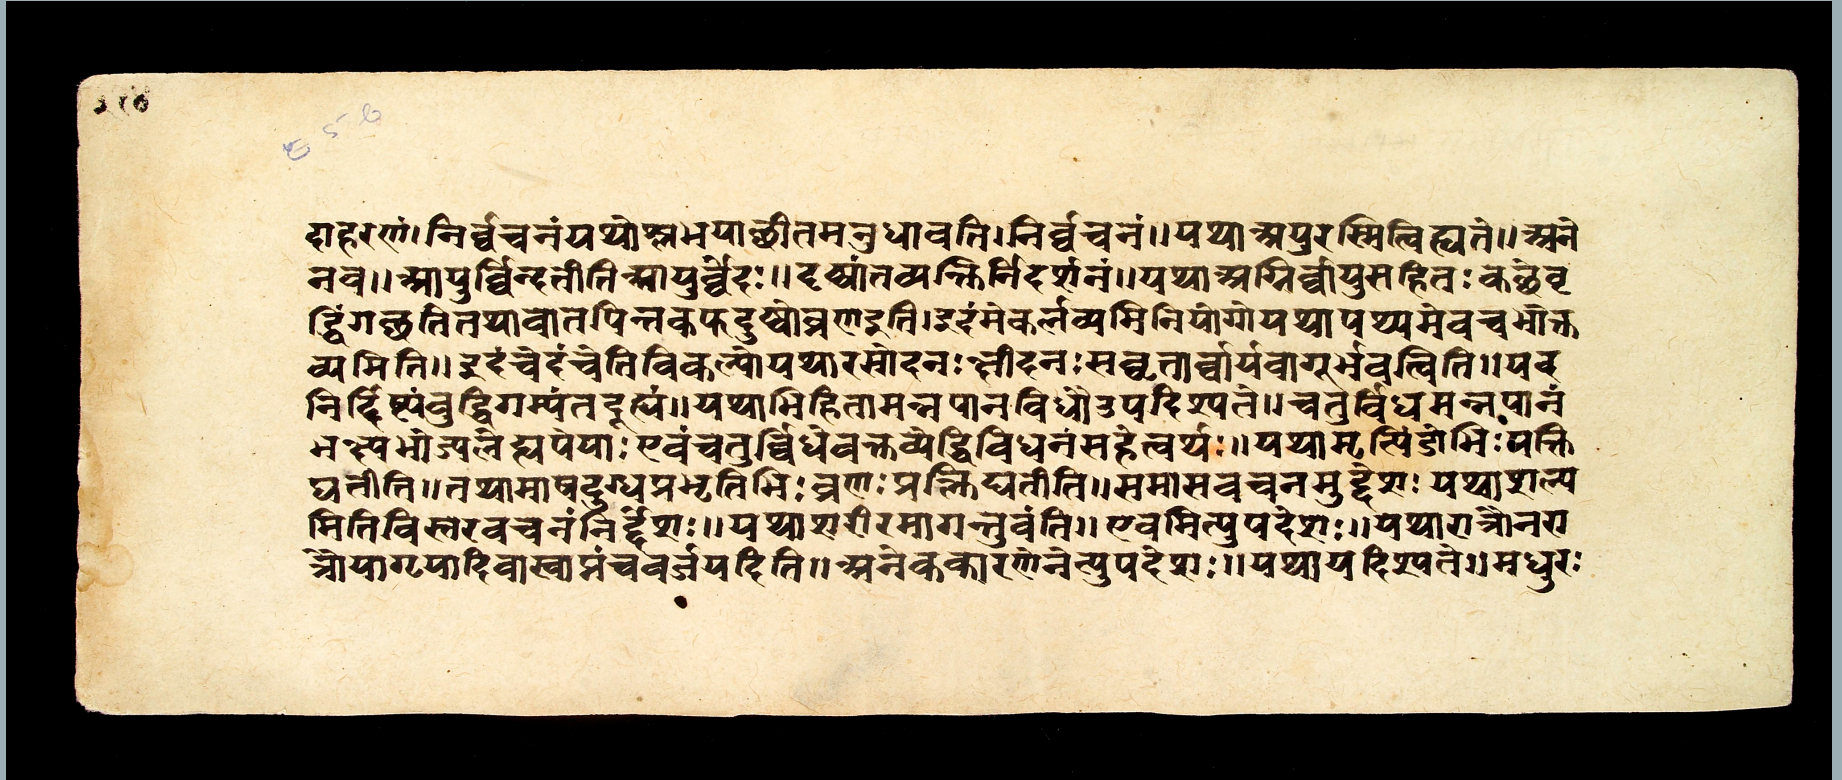 दाहरणं। निर्व्वचनं यथोष्णभयाच्छीतमनुधावति। निर्व्वचनं॥ यथा अपुरस्मित्विह्यते॥ अने
नव॥ आपुर्व्विन्दतीति आयुर्व्वेदः॥ दृष्टांतव्यक्तिर्न्निदर्शनं॥ यथा अग्निर्व्वायुसहितः कच्छेवृ
द्धिंगच्छति तथा वातपित्तकफदुष्टोव्रणइति। इदंमेकर्त्तव्यमिति नियोगो यथा पथ्यमेव च भोक्त
व्यमिति॥ इदंचेदंचेति विकल्पो यथा रसोदनः क्षीरोदनः सघृतार्व्वायवागूर्भवत्विति॥ यद
निर्द्दिष्टंबुद्धिगम्यंतदूह्यं॥ यथाभिहितामन्नपानविधौ उपदिश्यते॥ चतुर्व्विधमन्नपानं
भक्ष्यभोज्यलेह्यपेयाः एवंचतुर्व्विधेवक्तव्येद्विविधनंसहेत्वर्थः॥ यथामृत्पिंडोभिः पक्ति
घतीति॥ तथामाषदुग्धप्रभृतिभिः व्रणः प्रक्लिघतीति॥ समासवचनमुद्देशः यथाशल्य
मितिविस्तरवचनंनिर्द्देशः॥ यथाशरीरमागन्तुवंति॥ एवमित्युपदेशः॥ यथारात्रौनरा
त्रौयागृयादिवास्वाप्नंचवर्ज्जयदिति॥ अनेककारणेनेत्युपदेशः॥ यथायदिश्यते॥ मधुरः